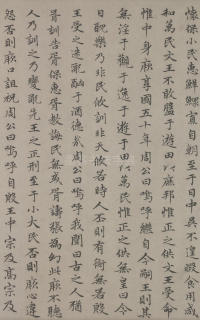 懷保小民惠鮮鰥寡自朝至于日中昃不遑暇食用咸
和萬民文王不敢盤于遊田以庶邦惟正之供文王受命
惟中身厥享國五十年周公曰嗚呼繼自今嗣王則其
無淫于觀于逸于遊于田以萬民惟正之供無皇曰今
日耽樂乃非民攸訓非天攸若時人丕則有愆無若殷
王受之迷亂酗于酒德哉周公曰嗚呼我聞曰古之人猶
胥訓告胥保惠胥教誨民無或胥譸張為幻此厥不聽
人乃訓之乃變亂先王之正刑至于小大民否則厥心違
怨否則厥口詛祝周公曰嗚呼自殷王中宗及高宗及